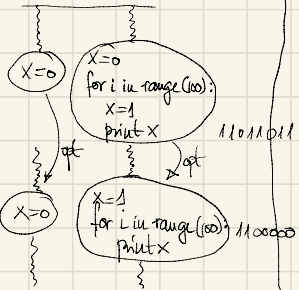 X=0
X=0
for i in range(100):
X=1
print X
11011011
opt
opt
X=0
X=1
for i in range(100): 1100000
print X